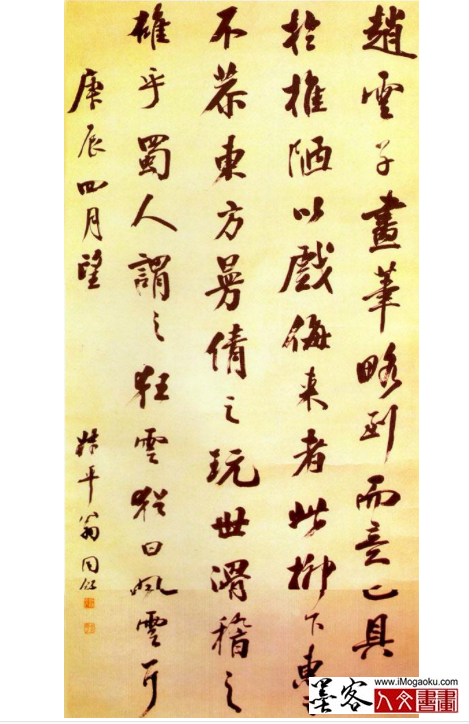 趙雲子畫筆略到而意已具
於椎陋以戲侮来者此柳下惠
不恭東方曼倩之玩世滑稽之
雄乎蜀人謂之狂雲猶曰風雲耳
庚辰四月望
叔平翁同龢
墨客
www.iMogaoku.com
人文書畫